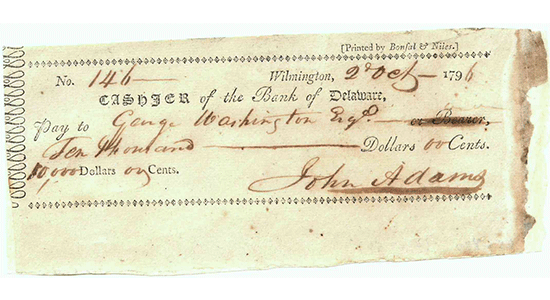 [Printed by Bonsal & Niles.]
No. 146 Wilmington, 2d Oct 1796
CASHIER of the Bank of Delaware,
Pay to George Washington Esqr. or Bearer,
Ten thousand Dollars 00 Cents.
10,000 Dollars 00 Cents.
John Adams